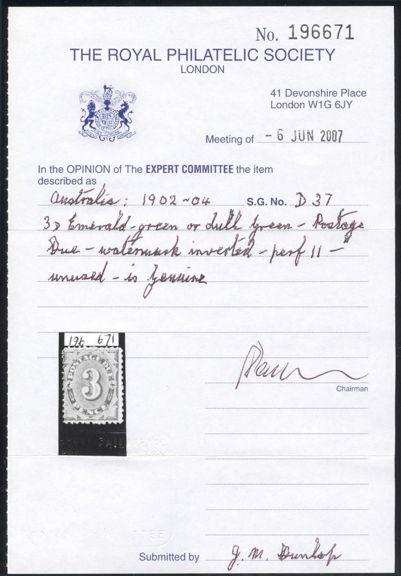 No. 196671
THE ROYAL PHILATELIC SOCIETY
LONDON
41 Devonshire Place
London W1G 6JY
Meeting of - 6 JUN 2007
In the OPINION of The EXPERT COMMITTEE the item
described as
Australia: 1902-04 S.G. No. D37
3D Emerald-green or dull green - Postage
Due - watermark inverted - perf 11 -
unused - is genuine
196 671
POSTAGE DUE
3
PENCE
Chairman
Submitted by J. M. Dunlop